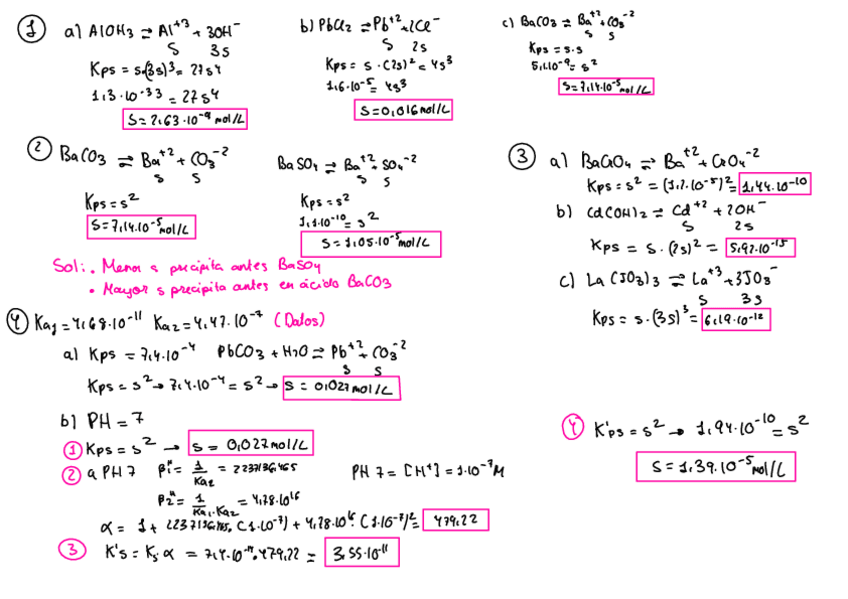 1
a) AlOH3 ⇌ Al+3 + 3OH-
S 3s
Kps = s·(3s)3 = 27s4
1,3·10-33 = 27s4
S= 2,63·10-9 mol/L
b) PbCl2 ⇌ Pb+2 + 2Cl-
S 2s
Kps = s·(2s)2 = 4s3
1,6·10-5 = 4s3
S=0,016mol/L
c) BaCO3 ⇌ Ba+2 + CO3-2
s s
Kps = s·s
5,1·10-9 = s2
S=7,14·10-5mol/L
2
BaCO3 ⇌ Ba+2 + CO3-2
s s
Kps = s2
S=7,14·10-5mol/L
BaSO4 ⇌ Ba+2 + SO4-2
s s
Kps = s2
1,1·10-10 = s2
S=1,05·10-5mol/L
Sol: • Menor s precipita antes BaSO4
• Mayor s precipita antes en ácido BaCO3
3
a) BaCrO4 ⇌ Ba+2 + CrO4-2
Kps = s2 = (1,2·10-5)2= 1,44·10-10
b) Cd(OH)2 ⇌ Cd+2 + 2OH-
S 2s
Kps = s·(2s)2 = 5,92·10-15
c) La(JO3)3 ⇌ La+3 + 3JO3-
s 3s
Kps = s·(3s)3 = 6,19·10-12
4 Ka1=4,68·10-11 Ka2=4,47·10-7 (Datos)
a) Kps = 7,4·10-4 PbCO3 + H2O ⇌ Pb+2 + CO3-2
s s
Kps = s2 → 7,4·10-4 = s2 → S= 0,027mol/L
b) PH = 7
1 Kps = s2 → S= 0,027mol/L
2 a PH 7 β1H = 1/Ka2 = 2237136,465 PH 7 = [H+] = 1·10-7M
β2H = 1/Ka1·Ka2 = 4,78·1016
α = 1 + 2237136,465·(1·10-7) + 4,78·1016·(1·10-7)2= 479,22
3 K's = Ks·α = 7,4·10-14·479,22 = 3,55·10-11
4 K'ps = s2 → 1,94·10-10 = s2
S=1,39·10-5mol/L